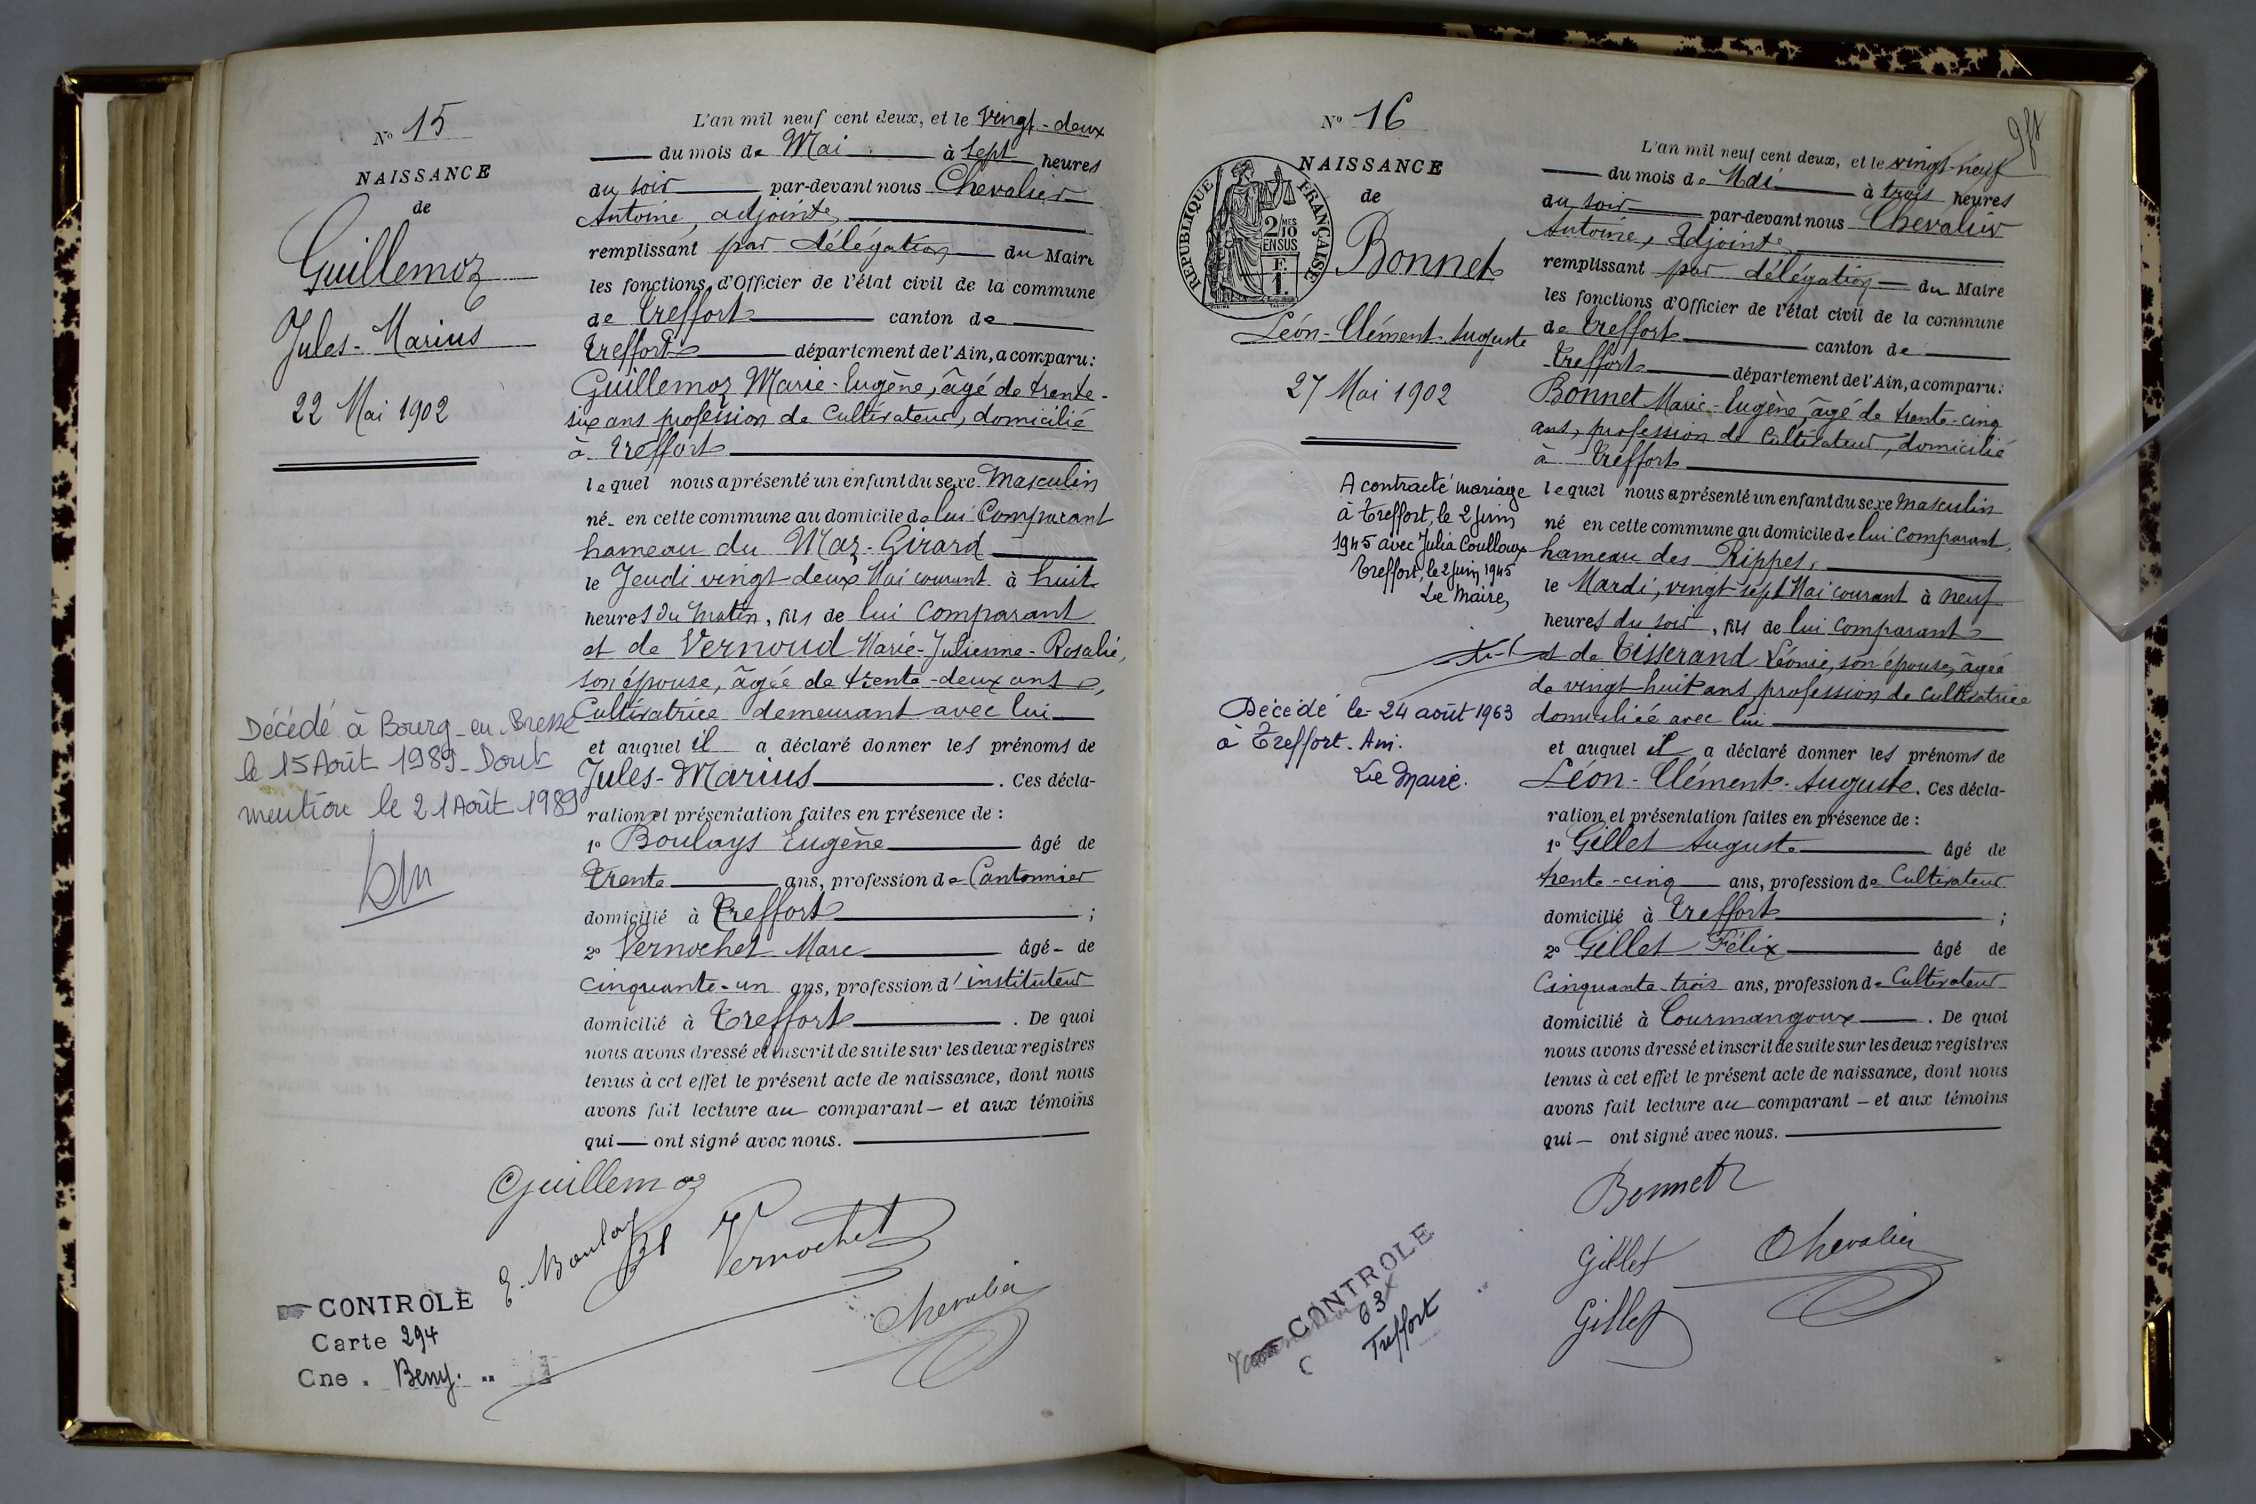 N° 15
NAISSANCE
de
Guillemoz
Jules-Marius
22 Mai 1902
Décédé à Bourg-en-Bresse
le 15 Août 1989. Dont
mention le 21 Août 1989
CONTROLE
Carte 294
Cne. Beny.
L'an mil neuf cent deux, et le vingt-deux
du mois de Mai à sept heures
du soir par-devant nous Chevalier
Antoine, adjoint
remplissant par délégation du Maire
les fonctions d'Officier de l'état civil de la commune
de Treffort canton de
Treffort département de l'Ain, a comparu:
Guillemoz Marie-Eugène, âgé de trente-
six ans profession de Cultivateur, domicilié
à Treffort
lequel nous a présenté un enfant du sexe Masculin
né en cette commune au domicile de lui Comparant
hameau du Maz-Girard
le Jeudi vingt-deux Mai courant à huit
heures du Matin, fils de lui Comparant
et de Vernoud Marie-Julienne-Rosalie,
son épouse, âgée de trente-deux ans,
Cultivatrice demeurant avec lui
et auquel il a déclaré donner les prénoms de
Jules-Marius. Ces décla-
ration et présentation faites en présence de :
1° Boulays Eugène âgé de
Trente ans, profession de Cantonnier
domicilié à Treffort ;
2° Vernochet Marc âgé de
Cinquante-un ans, profession d'instituteur
domicilié à Treffort. De quoi
nous avons dressé et inscrit de suite sur les deux registres
tenus à cet effet le présent acte de naissance, dont nous
avons fait lecture au comparant et aux témoins
qui ont signé avec nous.
Guillemoz
E. Boulay
Vernochet
Chevalier
N° 16
NAISSANCE
de
REPUBLIQUE FRANÇAISE
2/10 MES
EN SUS
F.
1.
Bonnet
Léon-Clément-Auguste
27 Mai 1902
A contracté mariage
à Treffort, le 2 Juin
1945 avec Julia Coulloux
Treffort, le 2 Juin 1945
Le Maire,
Décédé le 24 août 1963
à Treffort. Ain.
Le Maire.
CONTROLE
63
Treffort
L'an mil neuf cent deux, et le vingt-neuf
du mois de Mai à trois heures
du soir par-devant nous Chevalier
Antoine, Adjoint
remplissant par délégation du Maire
les fonctions d'Officier de l'état civil de la commune
de Treffort canton de
Treffort département de l'Ain, a comparu:
Bonnet Marie-Eugène, âgé de trente-cinq
ans, profession de Cultivateur, domicilié
à Treffort
lequel nous a présenté un enfant du sexe Masculin
né en cette commune au domicile de lui Comparant,
hameau des Rippes,
le Mardi, vingt-sept Mai courant à neuf
heures du soir, fils de lui Comparant
et de Tisserand Léonie, son épouse, âgée
de vingt-huit ans, profession de Cultivatrice
domiciliée avec lui
et auquel il a déclaré donner les prénoms de
Léon-Clément-Auguste. Ces décla-
ration et présentation faites en présence de :
1° Gillet Auguste âgé de
trente-cinq ans, profession de Cultivateur
domicilié à Treffort ;
2° Gillet Félix âgé de
Cinquante-trois ans, profession de Cultivateur
domicilié à Courmangoux. De quoi
nous avons dressé et inscrit de suite sur les deux registres
tenus à cet effet le présent acte de naissance, dont nous
avons fait lecture au comparant et aux témoins
qui ont signé avec nous.
Bonnet
Gillet
Chevalier
Gillet